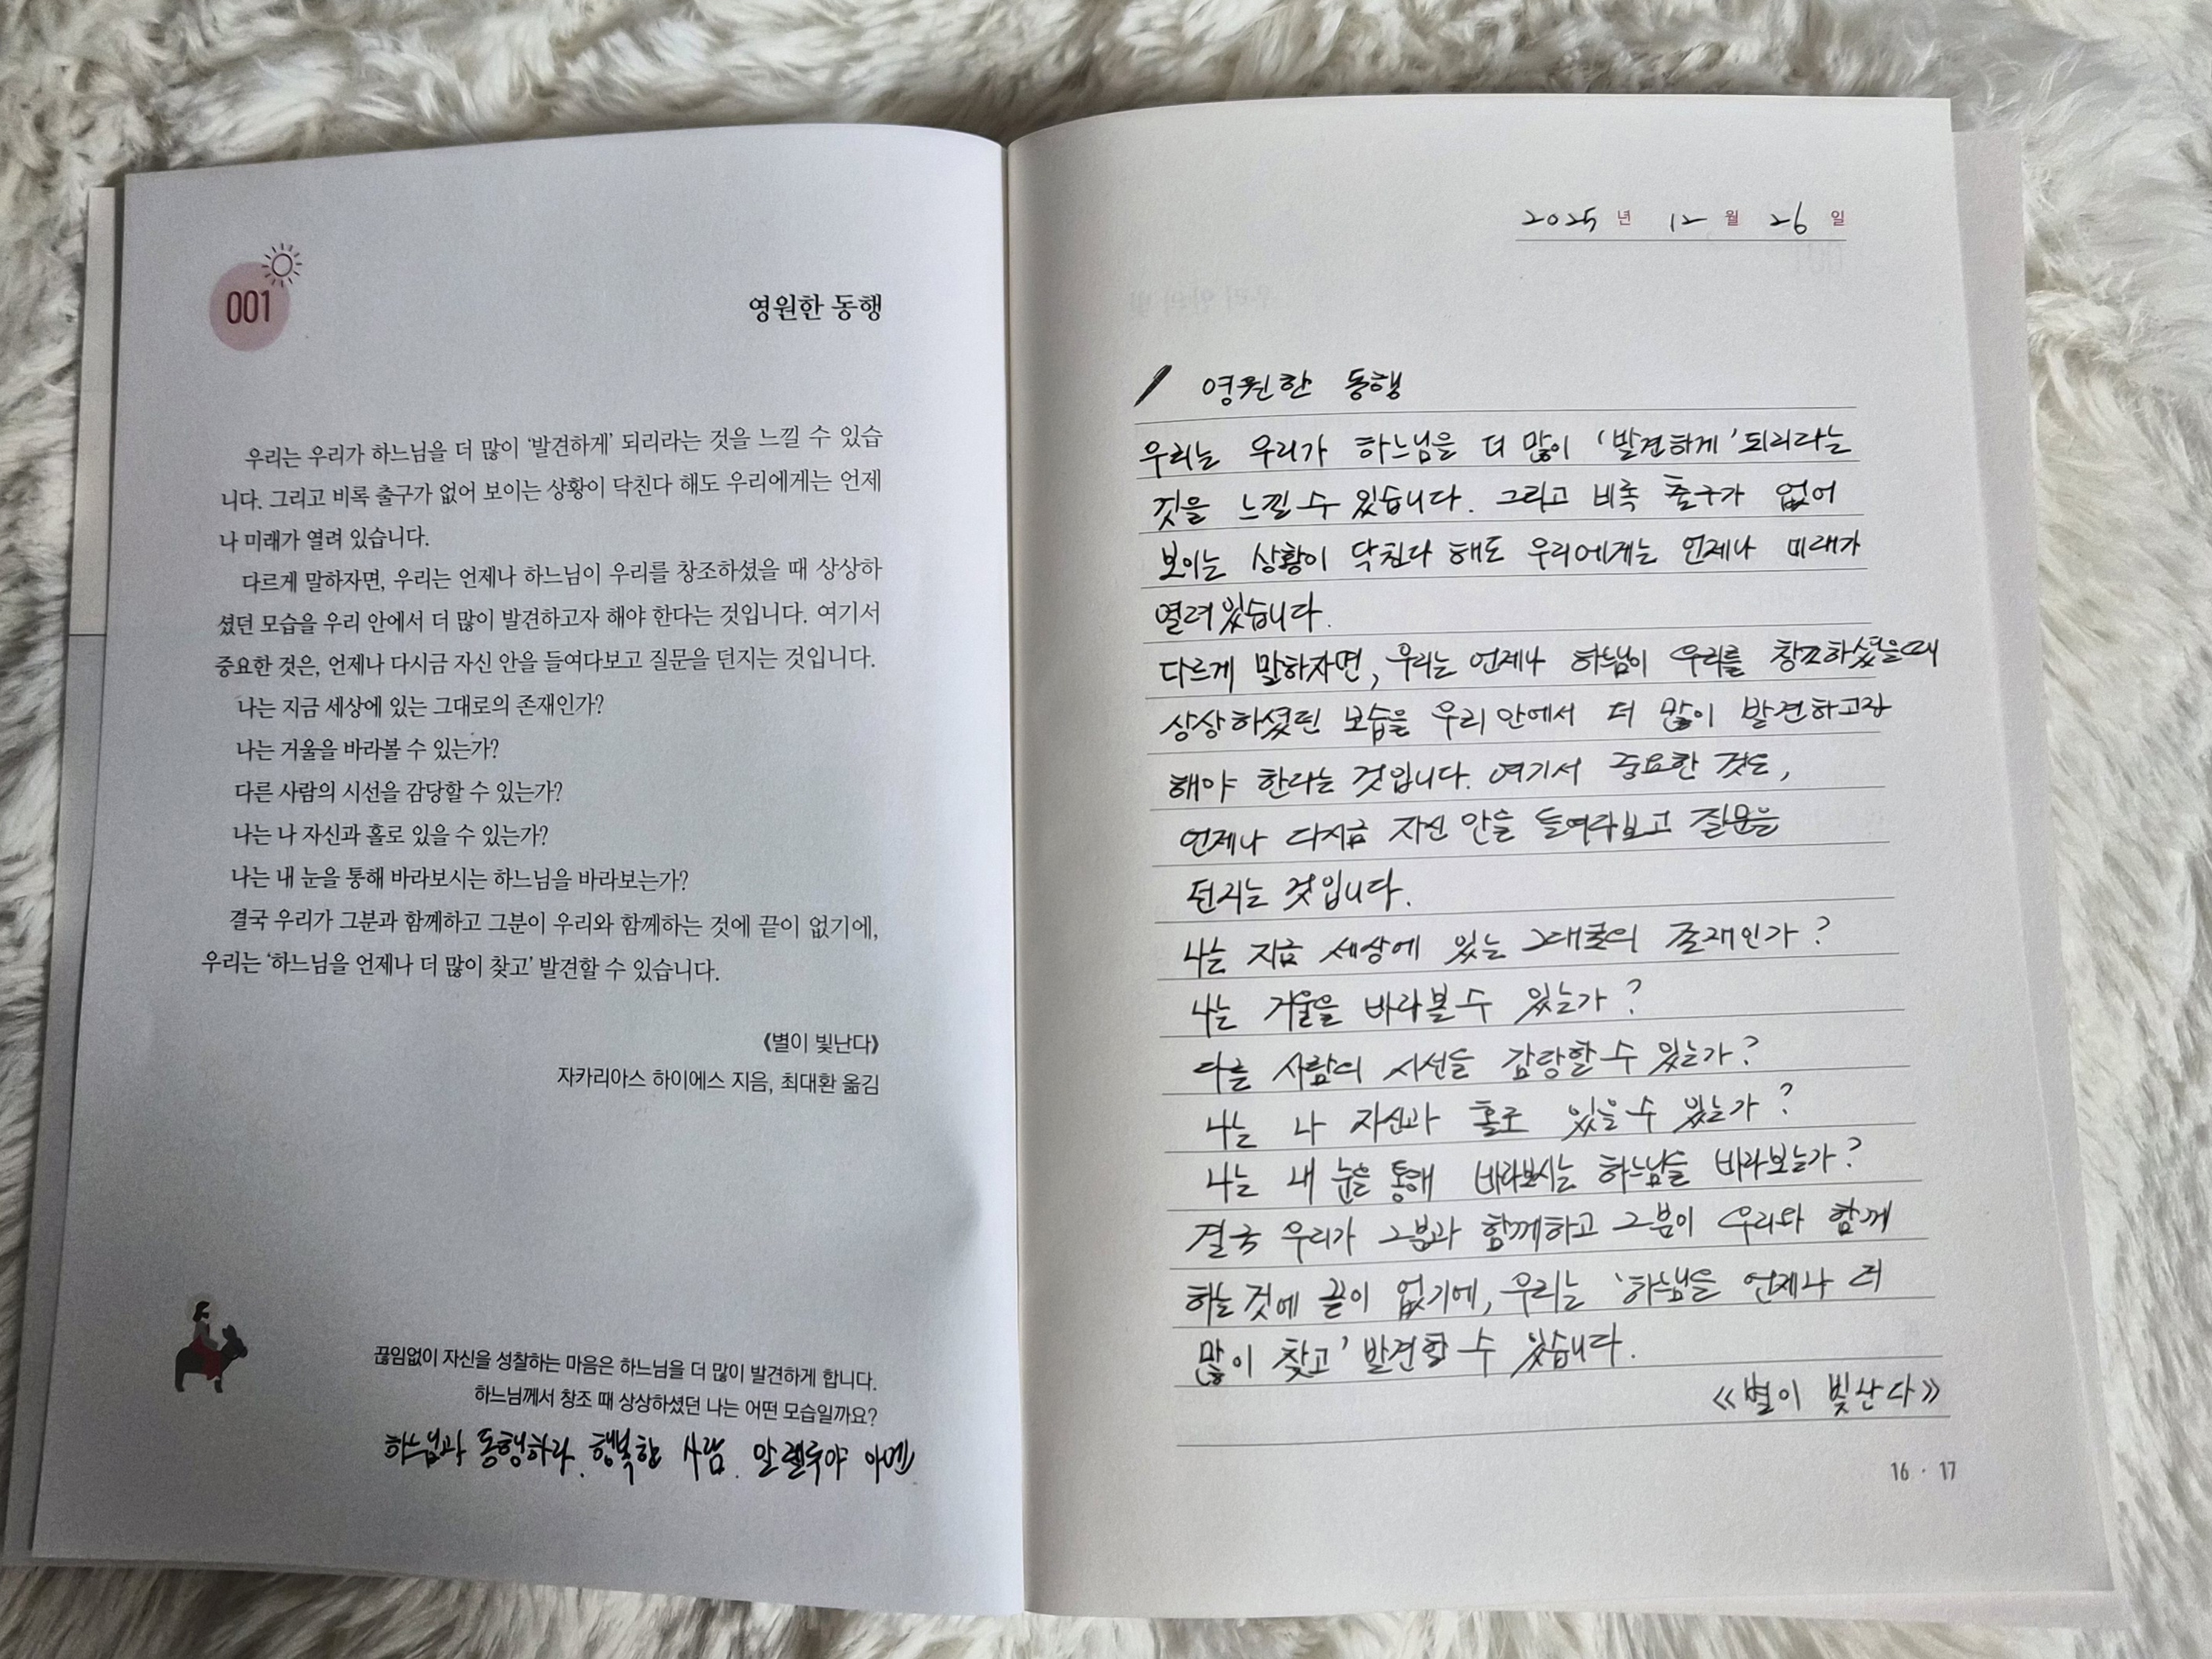 001
영원한 동행
우리는 우리가 하느님을 더 많이 ‘발견하게’ 되리라는 것을 느낄 수 있습
니다. 그리고 비록 출구가 없어 보이는 상황이 닥친다 해도 우리에게는 언제
나 미래가 열려 있습니다.
다르게 말하자면, 우리는 언제나 하느님이 우리를 창조하셨을 때 상상하
셨던 모습을 우리 안에서 더 많이 발견하고자 해야 한다는 것입니다. 여기서
중요한 것은, 언제나 다시금 자신 안을 들여다보고 질문을 던지는 것입니다.
나는 지금 세상에 있는 그대로의 존재인가?
나는 거울을 바라볼 수 있는가?
다른 사람의 시선을 감당할 수 있는가?
나는 나 자신과 홀로 있을 수 있는가?
나는 내 눈을 통해 바라보시는 하느님을 바라보는가?
결국 우리가 그분과 함께하고 그분이 우리와 함께하는 것에 끝이 없기에,
우리는 ‘하느님을 언제나 더 많이 찾고’ 발견할 수 있습니다.
《별이 빛난다》
자카리아스 하이에스 지음, 최대환 옮김
끊임없이 자신을 성찰하는 마음은 하느님을 더 많이 발견하게 합니다.
하느님께서 창조 때 상상하셨던 나는 어떤 모습일까요?
하느님과 동행하라. 행복한 사람. 알렐루야 아멘
2025년 12월 26일
영원한 동행
우리는 우리가 하느님을 더 많이 ‘발견하게’ 되리라는
것을 느낄 수 있습니다. 그리고 비록 출구가 없어
보이는 상황이 닥친다 해도 우리에게는 언제나 미래가
열려 있습니다.
다르게 말하자면, 우리는 언제나 하느님이 우리를 창조하셨을 때
상상하셨던 모습을 우리 안에서 더 많이 발견하고자
해야 한다는 것입니다. 여기서 중요한 것은,
언제나 다시금 자신 안을 들여다보고 질문을
던지는 것입니다.
나는 지금 세상에 있는 그대로의 존재인가?
나는 거울을 바라볼 수 있는가?
다른 사람의 시선을 감당할 수 있는가?
나는 나 자신과 홀로 있을 수 있는가?
나는 내 눈을 통해 바라보시는 하느님을 바라보는가?
결국 우리가 그분과 함께하고 그분이 우리와 함께
하는 것에 끝이 없기에, 우리는 ‘하느님을 언제나 더
많이 찾고’ 발견할 수 있습니다.
《별이 빛난다》
16 · 17